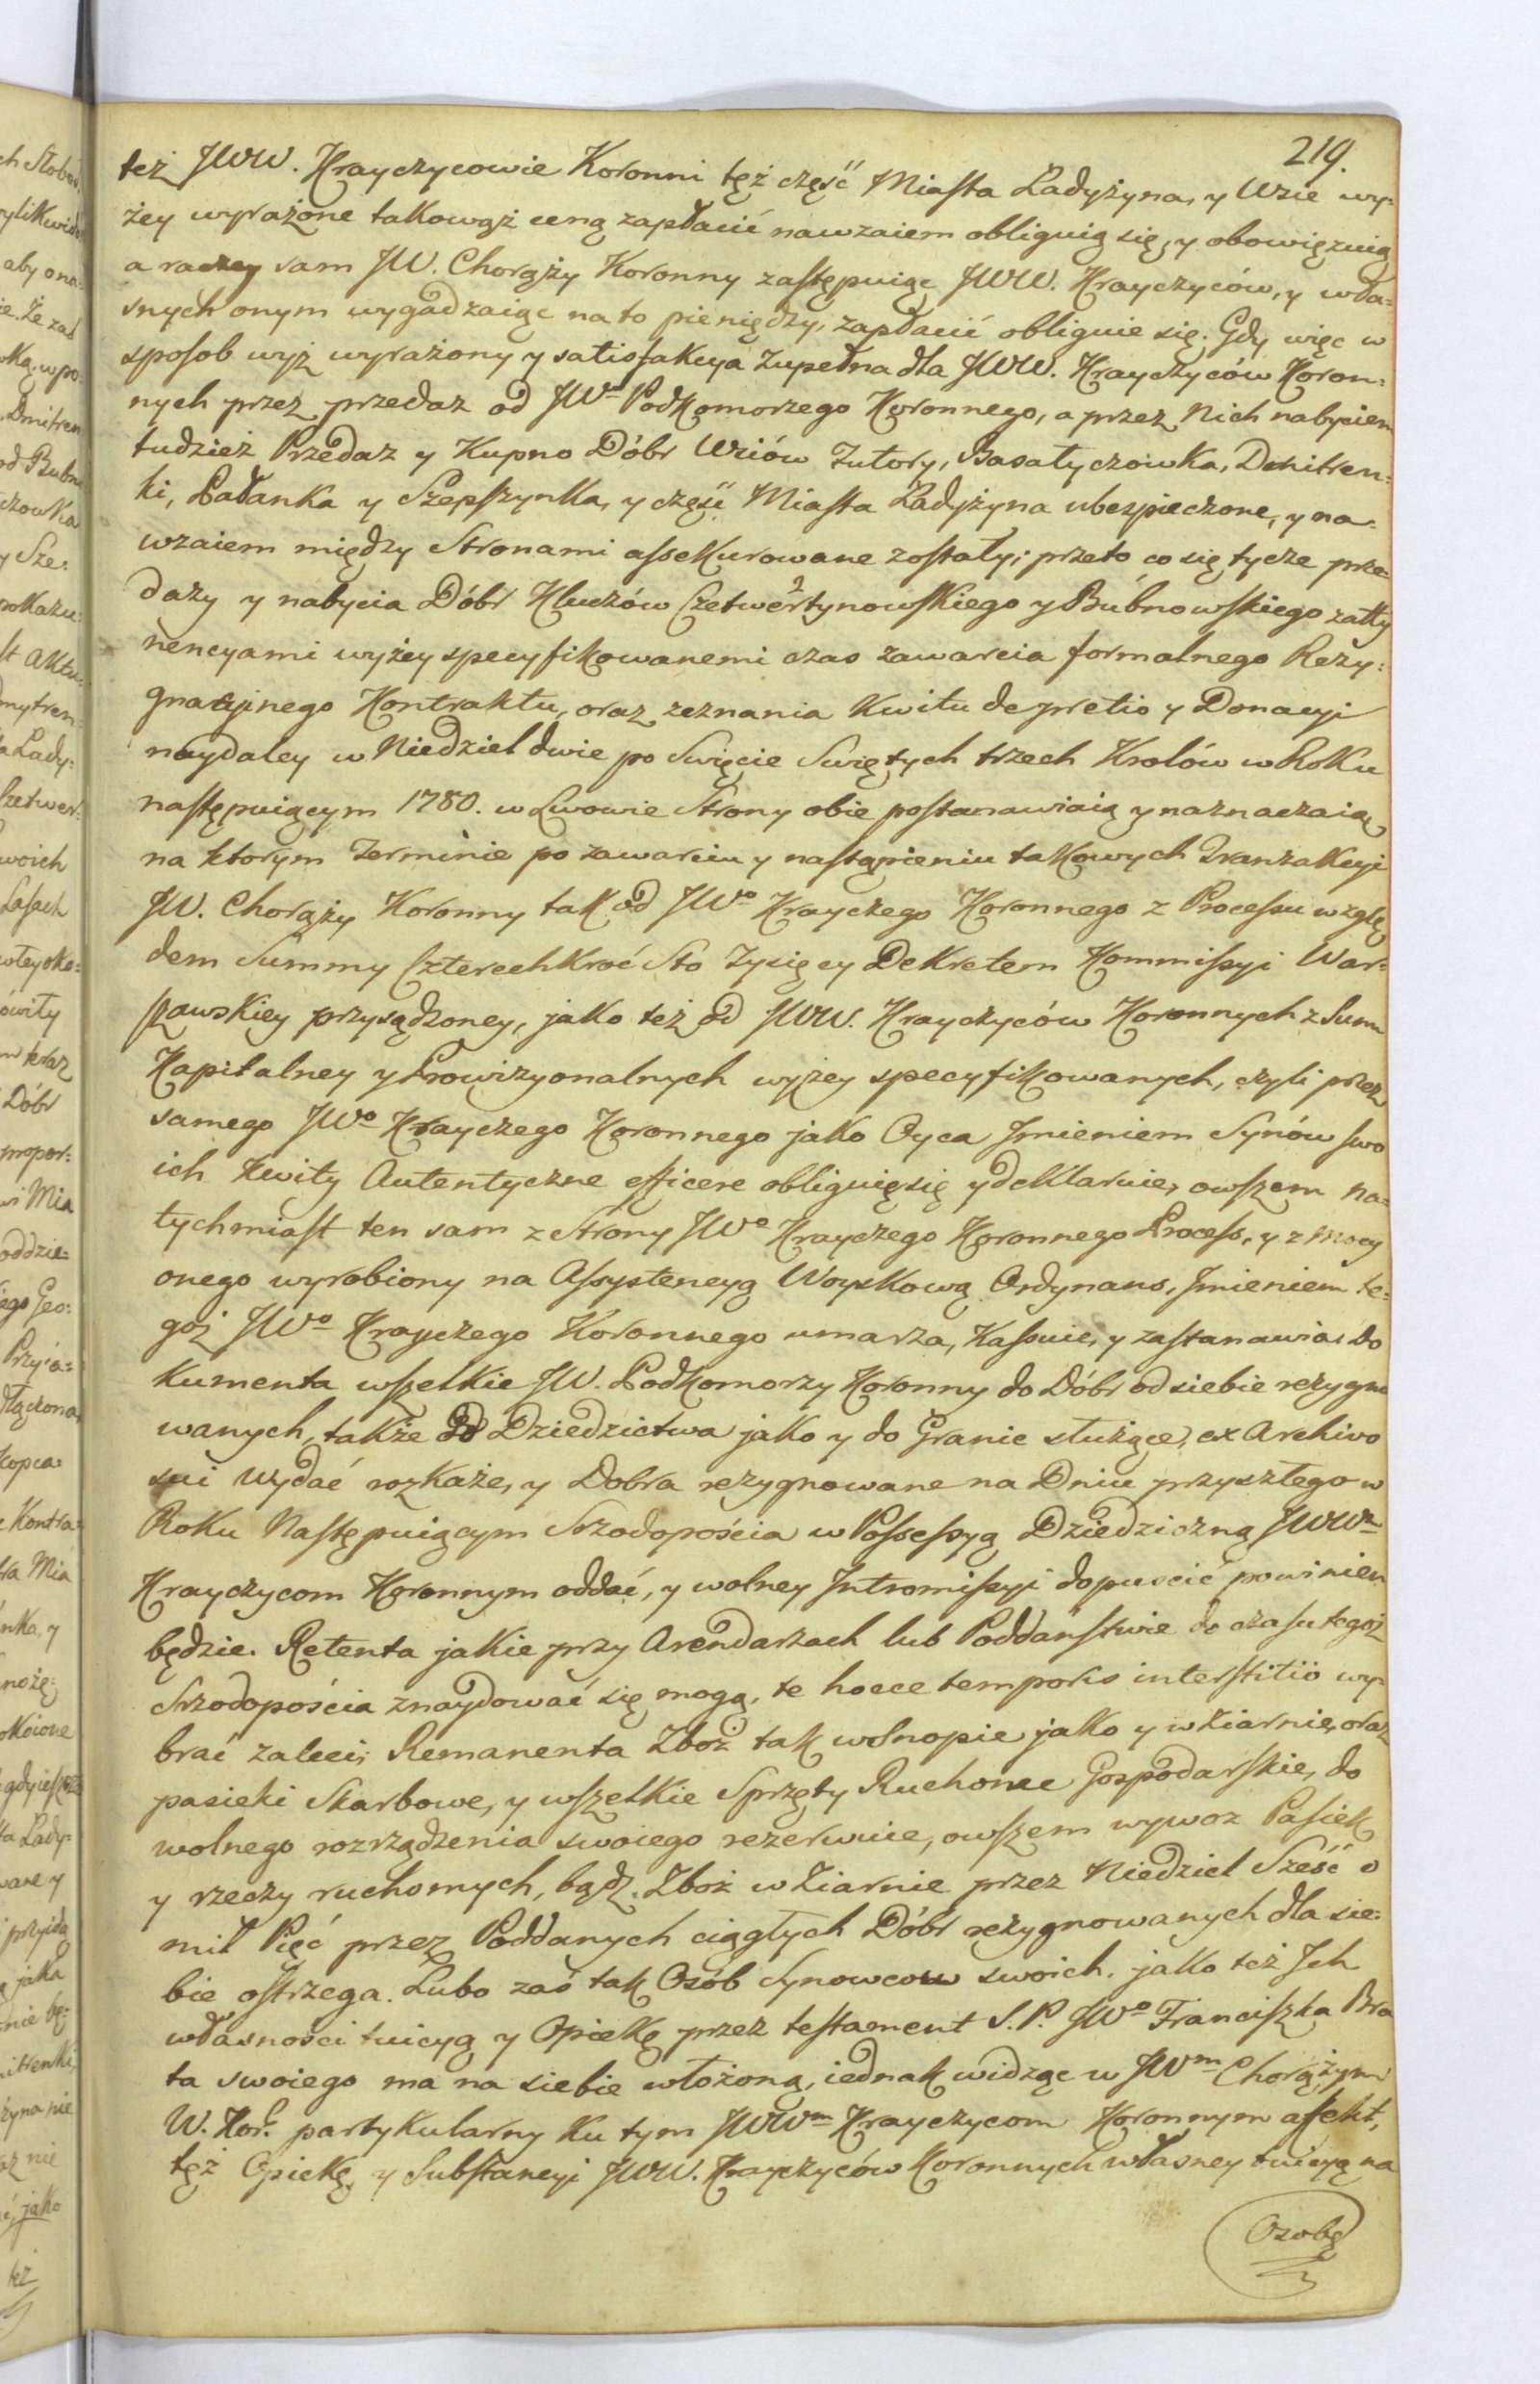 219.
też JWW. Krayczycowie Koronni tęż część Miasta Ładyżyna, y Wsie wy-
żey wyrażone takowąż ceną zapłacić nawzaiem obliguią się, y obowięzuią
a raczey sam JW. Chorąży Koronny zastępuiąc JWW. Krayczyców, y wła-
snych onym wygadzaiąc na to pieniędzy, zapłacić obliguie się. Gdy więc w
sposob wyż wyrażony y satisfakcya zupełna dla JWW. Krayczyców Koron:
nych przez przedaz od JWo Podkomorzego Koronnego, a przez Nich nabyciem
tudzież Przedaz y Kupno Dóbr Wsiów Zutory, Basatyczowka, Dmitren:
ki, Łatanka y Szepszynka, y część Miasta Ładyżyna ubezpieczone, y na-
wzaiem między Stronami assekurowane zostały; przeto co się tycze prze-
daży y nabycia Dóbr Kluczów Czetwertynowskiego y Bubnowskiego z atty
nencyami wyżey specyfikowanemi czas zawarcia formalnego Rezy:
gnacyjnego Kontraktu, oraz zeznania Kwitu de pretio y Donacyi
naydaley w Niedziel dwie po Swięcie Swiętych trzech Krolów w Roku
następuiącym 1780. w Lwowie Strony obie postanawiaią y naznaczaią,
na ktorym Terminie po zawarciu y nastąpieniu takowych Tranzakcyi
JW. Chorąży Koronny tak od JWo Krayczego Koronnego z Processu wzglę
dem Summy Czterechkroć Sto Tysięcy Dekretem Kommissyi War-
szawskiey przysądzoney, jako też od JWW. Krayczyców Koronnych z Summ
Kapitalney y Prowizyonalnych wyżey specyfikowanych, czyli przez
samego JWo Krayczego Koronnego jako Oyca Imieniem Synów swo
ich Kwity Autentyczne efficere obliguię się y deklaruie, owszem na-
tychmiast ten sam z Strony JWo Krayczego Koronnego Process, y z mocy
onego wyrobiony na Assystencyą Woyskową Ordynans, Imieniem te-
goż JWo Krayczego Koronnego umarza, Kassuie, y zastanawia. Do
kumenta wszelkie JW. Podkomorzy Koronny do Dóbr od siebie rezygno
wanych, także do Dziedzictwa jako y do Granic służące, ex Archivo
sui wydać rozkaże, y Dobra rezygnowane na Dniu przyszłego w
Roku Następuiącym Srzodopościa w Possessyą Dziedziczną JWWm
Krayczycom Koronnym oddać, y wolney Intromissyi dopuscić powinien
będzie. Retenta jakie przy Arendarzach lub Poddaństwie do czasu tegoż
Srzodopościa znaydować się mogą, te hocce temporis interstitiö wy-
brać zaleci; Remanenta Zboż tak w snopie jako y w ziarnie, oraz
pasieki Skarbowe, y wszelkie Sprzęty Ruchome Gospodarskie, do
wolnego rozrządzenia swoiego rezerwuie, owszem wywoz Pasiek
y rzeczy ruchomych, bądź Zboż w Ziarnie przez Niedziel Sześć o
mil Pięć przez Poddanych ciągłych Dóbr rezygnowanych dla sie:
bie ostrzega. Lubo zaś tak Osób Synowcow swoich, jako też Ich
własności tuicyą y Opiekę przez testament S. P. JWo Franciszka Bra
ta swoiego ma na siebie włożoną, iednak widząc w JWm Chorążym
W. Kor. partykularny ku tym JWWm Krayczycom Koronnym affekt,
tęż Opiekę, y Substancyi JWW. Krayczyców Koronnych własney tuicyą na
Osobę